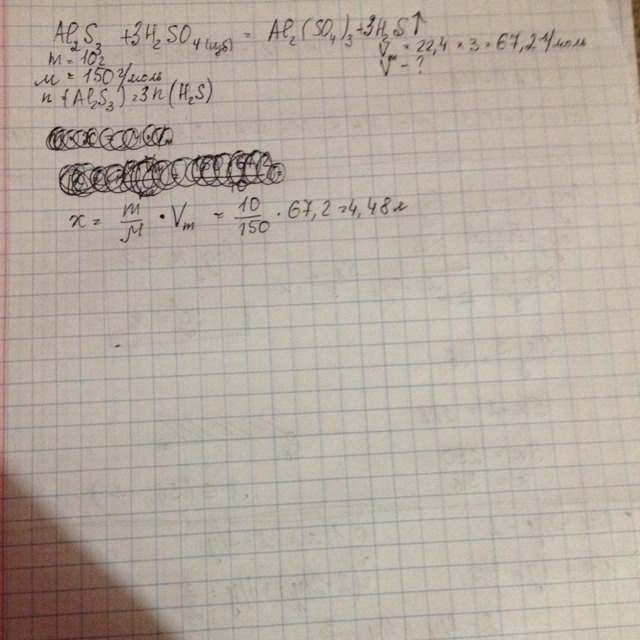 Al₂S₃ + 3H₂SO₄ (изб) = Al₂(SO₄)₃ + 3H₂S↑
m = 10г
V = 22,4 × 3 = 67,2 л/моль
M = 150 г/моль
V - ?
n (Al₂S₃) = 3n (H₂S)
x = m/M · Vm = 10/150 · 67,2 = 4,48 л